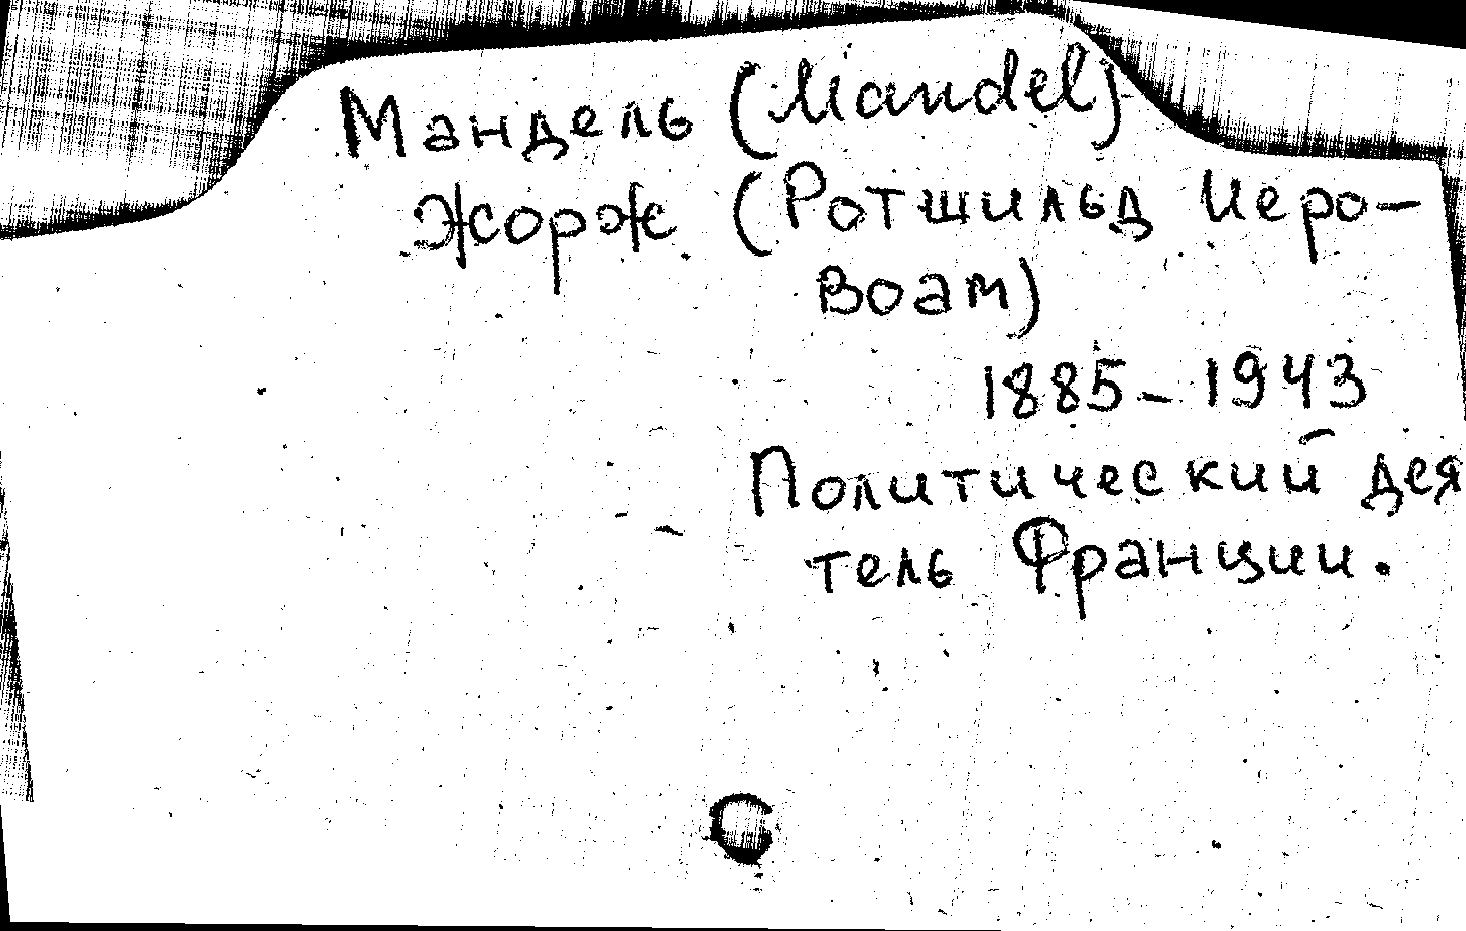 Мандель (Mandel)
Жорж (Ротшильд Иеро-
воам)
1885-1943
Политический дея
тель Франции.